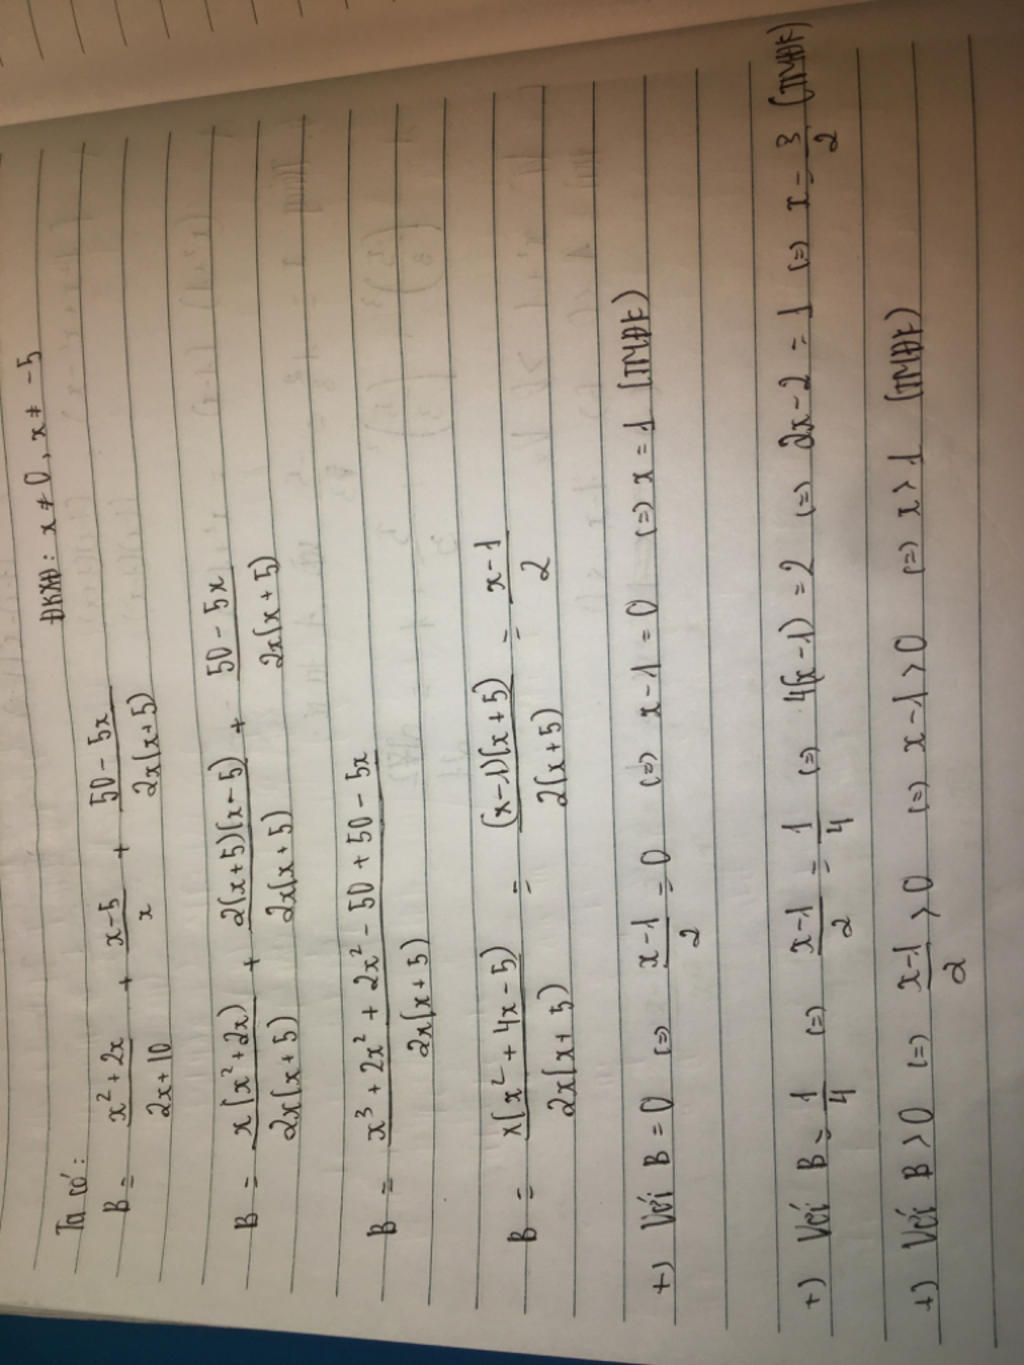 ĐKXĐ: x ≠ 0, x ≠ -5
Ta có:
B = (x² + 2x)/(2x + 10) + (x - 5)/x + (50 - 5x)/(2x(x + 5))
B = x(x² + 2x)/(2x(x + 5)) + 2(x + 5)(x - 5)/(2x(x + 5)) + (50 - 5x)/(2x(x + 5))
B = (x³ + 2x² + 2x² - 50 + 50 - 5x)/(2x(x + 5))
B = x(x² + 4x - 5)/(2x(x + 5)) = (x - 1)(x + 5)/(2(x + 5)) = (x - 1)/2
+) Với B = 0 (=) (x - 1)/2 = 0 (=) x - 1 = 0 (=) x = 1 (TMĐK)
+) Với B = 1/4 (=) (x - 1)/2 = 1/4 (=) 4(x - 1) = 2 (=) 2x - 2 = 1 (=) x = 3/2 (TMĐK)
+) Với B > 0 (=) (x - 1)/2 > 0 (=) x - 1 > 0 (=) x > 1 (TMĐK)